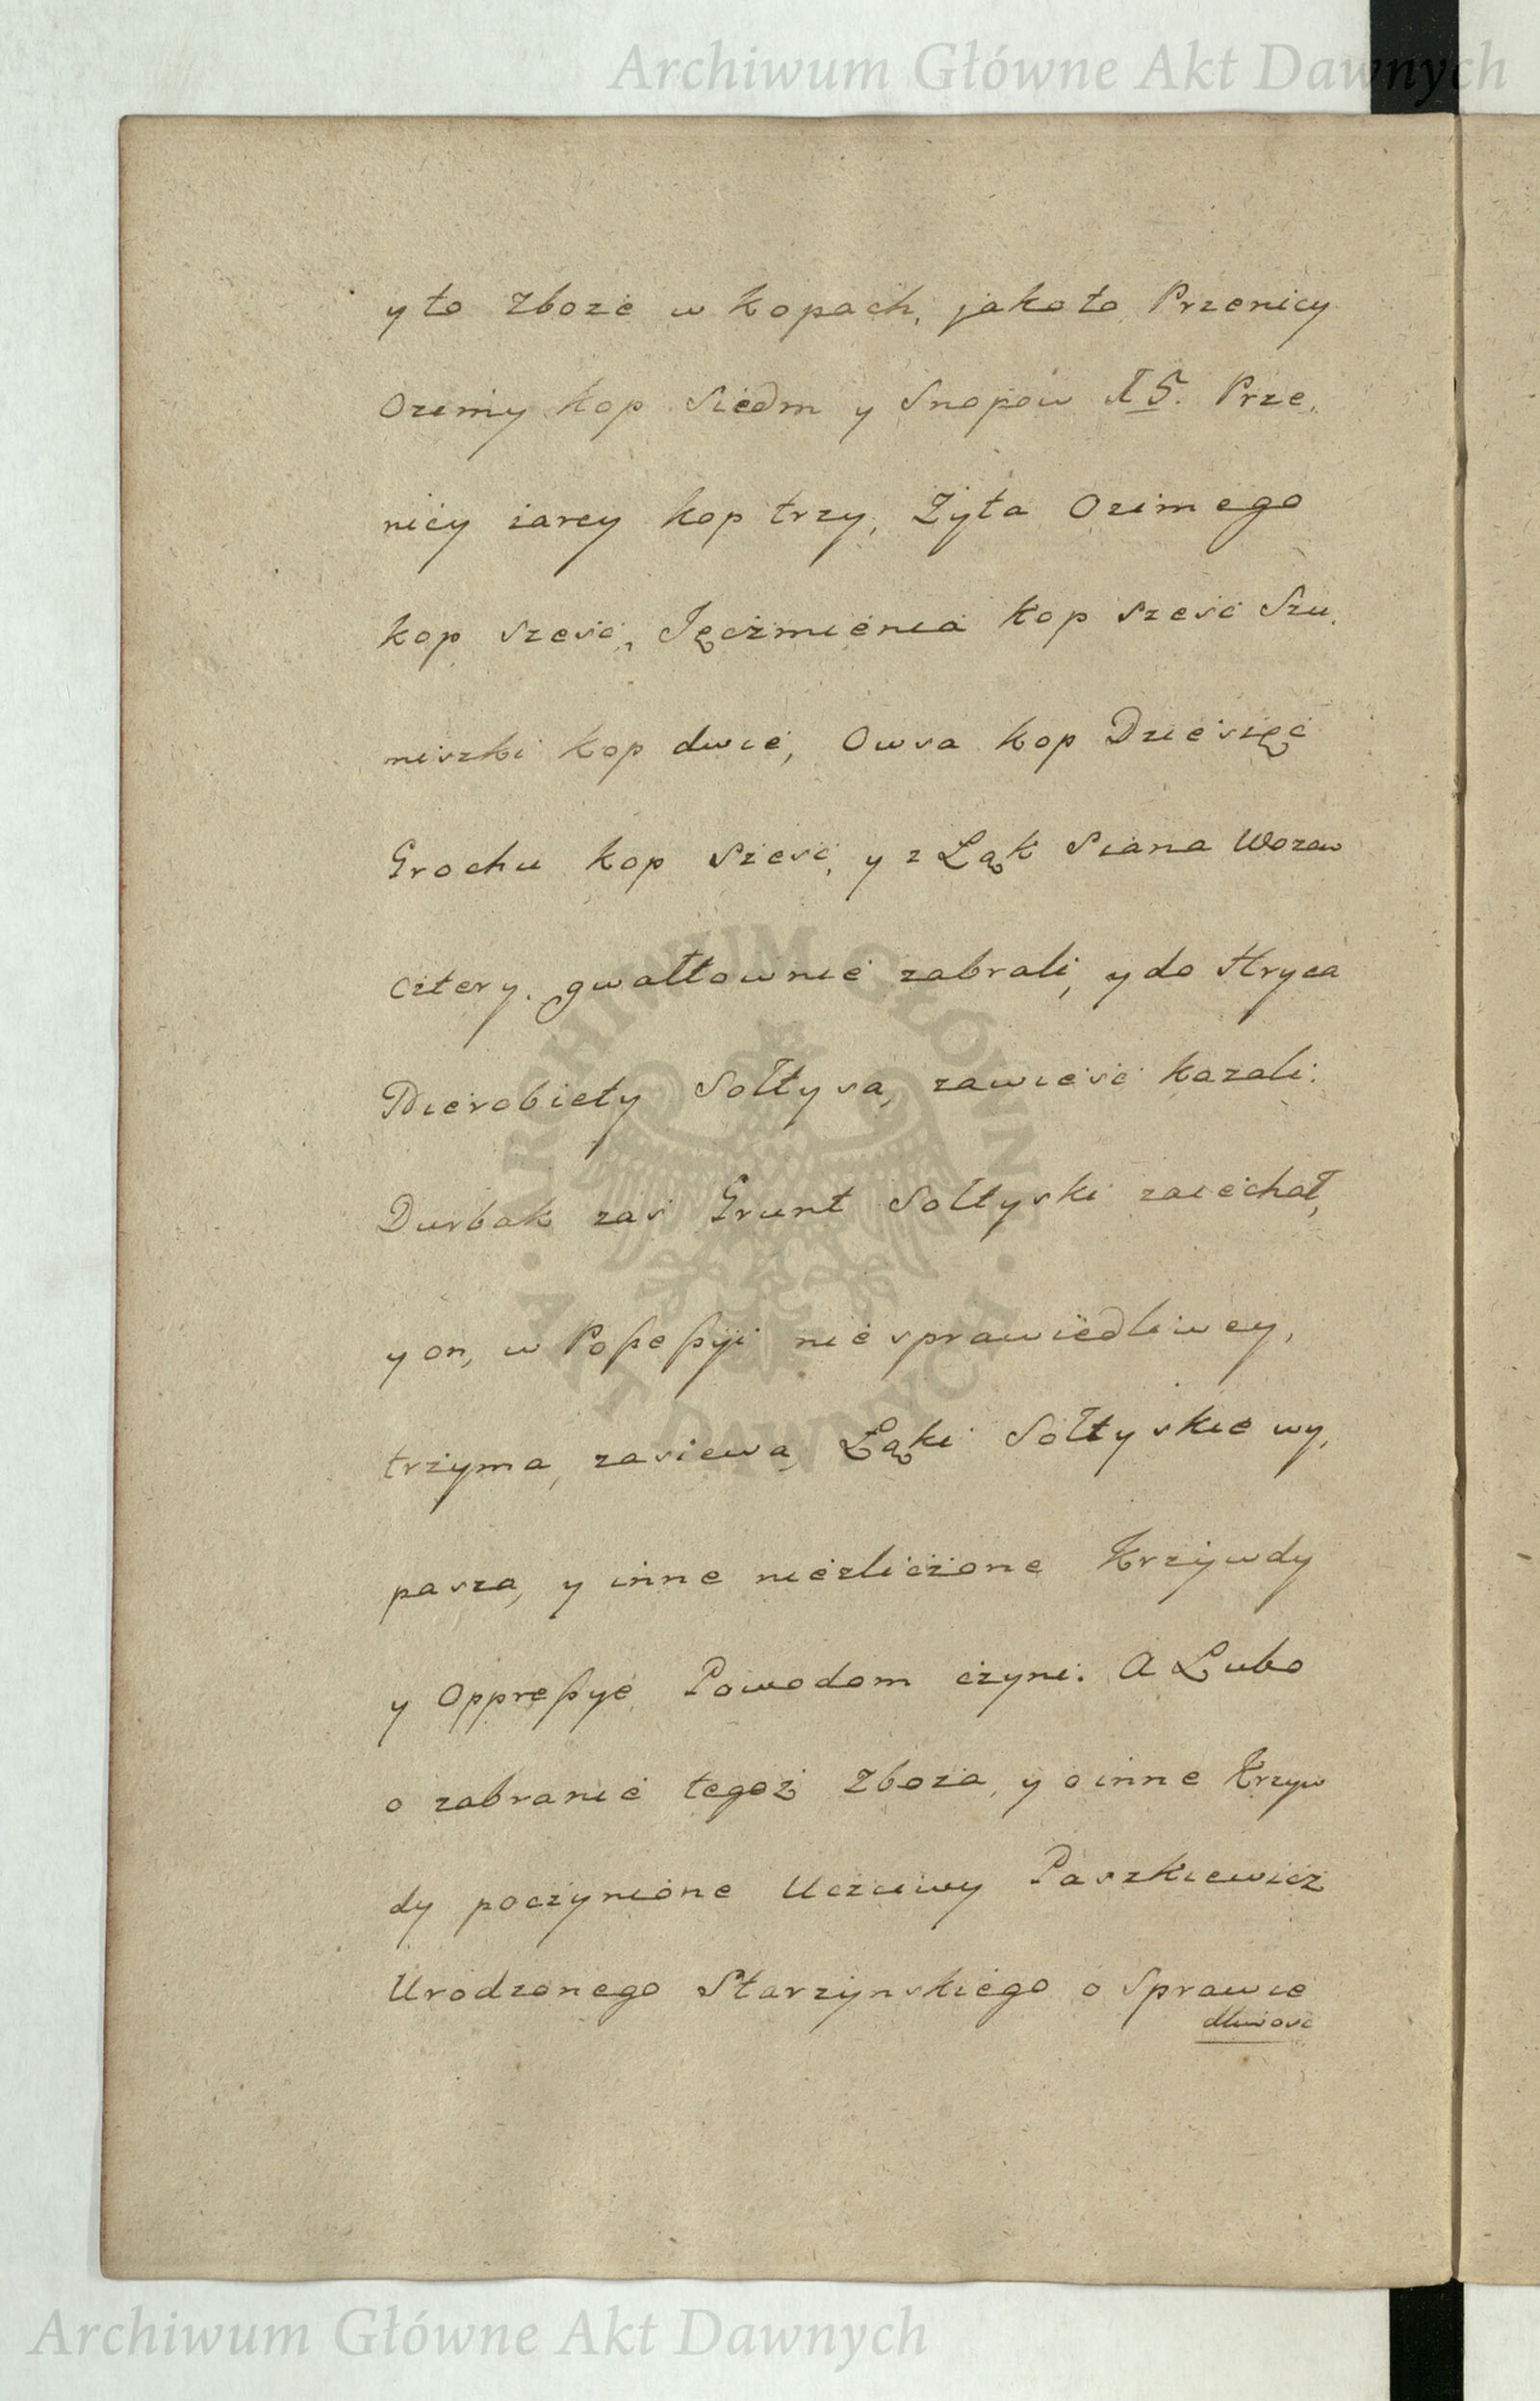 Archiwum Główne Akt Dawnych
y to Zboże w Kopach, jako to Przenicy
Ozimy Kop Siedm y Snopow 15. Prze,
nicy iarey kop trzy, Zyta Ozimego
kop szesć, Jęczmienia Kop szesć Szu,
miszki kop dwie, Owsa kop Dziesięć
Grochu kop szesć, y z Łąk Siana Wozow
cztery. gwałtownie zabrali, y do Hryca
Dierobiety Sołtysa, zawiesć kazali.
Durbak zas Grunt Sołtyski zaiechał,
y on, w Poßeßyi niesprawiedliwey,
trzyma, zasiewa, Łąki Sołtyskie wy,
pasza, y inne niezliczone Krzywdy
y Oppreßye Powodom czyni. A Lubo
o zabranie tegoż Zboża, y o inne Krzyw
dy poczynione Uczciwy Paszkiewicz
Urodzonego Starzynskiego o Sprawie
dliwosć
ARCHIWUM GŁÓWNE · AKT DAWNYCH ·
Archiwum Główne Akt Dawnych